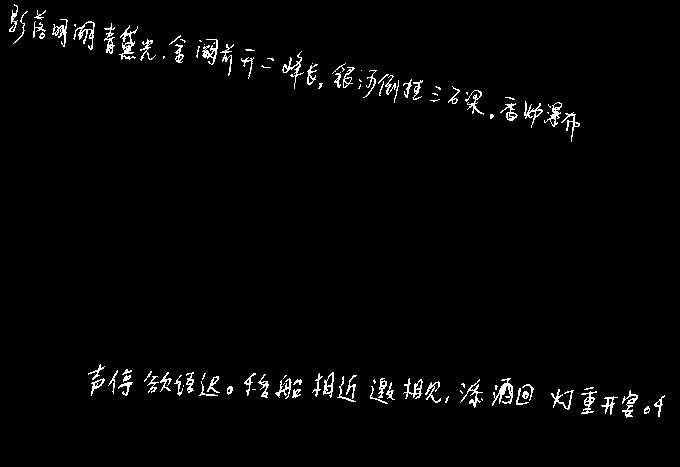 影落明湖青黛光，金阙前开二峰长，银河倒挂三石梁。香炉瀑布
声停欲语迟。移船相近邀相见，添酒回灯重开宴。千